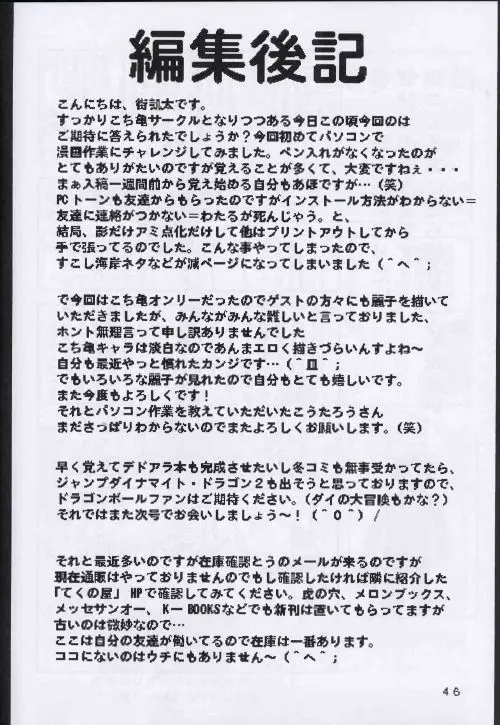 編集後記
こんにちは、街凱太です。
すっかりこち亀サークルとなりつつある今日この頃今回のは
ご期待に答えられたでしょうか？今回初めてパソコンで
漫画作業にチャレンジしてみました。ペン入れがなくなったのが
とてもありがたいのですが覚えることが多くて、大変ですねぇ・・・
まぁ入稿一週間前から覚え始める自分もあほですが…（笑）
PCトーンも友達からもらったのですがインストール方法がわからない＝
友達に連絡がつかない＝わたるが死んじゃう。と、
結局、影だけアミ点化だけして他はプリントアウトしてから
手で張ってるのでした。こんな事やってしまったので、
すこし海岸ネタなどが減ページになってしまいました（＾へ＾；
で今回はこち亀オンリーだったのでゲストの方々にも麗子を描いて
いただきましたが、みんながみんな難しいと言っておりました、
ホント無理言って申し訳ありませんでした
こち亀キャラは淡白なのであんまエロく描きづらいんすよね～
自分も最近やっと慣れたカンジです…（＾皿＾；
でもいろいろな麗子が見れたので自分もとても嬉しいです。
また今度もよろしくです！
それとパソコン作業を教えていただいたこうたろうさん
まださっぱりわからないのでまたよろしくお願いします。（笑）
早く覚えてデドアラ本も完成させたいし冬コミも無事受かってたら、
ジャンプダイナマイト・ドラゴン２も出そうと思っておりますので、
ドラゴンボールファンはご期待ください。（ダイの大冒険もかな？）
それではまた次号でお会いしましょう～！（＾０＾）/
それと最近多いのですが在庫確認とうのメールが来るのですが
現在通販はやっておりませんのでもし確認したければ隣に紹介した
『てくの屋』HPで確認してみてください。虎の穴、メロンブックス、
メッセサンオー、K－BOOKSなどでも新刊は置いてもらってますが
古いのは微妙なので…
ここは自分の友達が働いてるので在庫は一番あります。
ココにないのはウチにもありません～（＾へ＾；
46